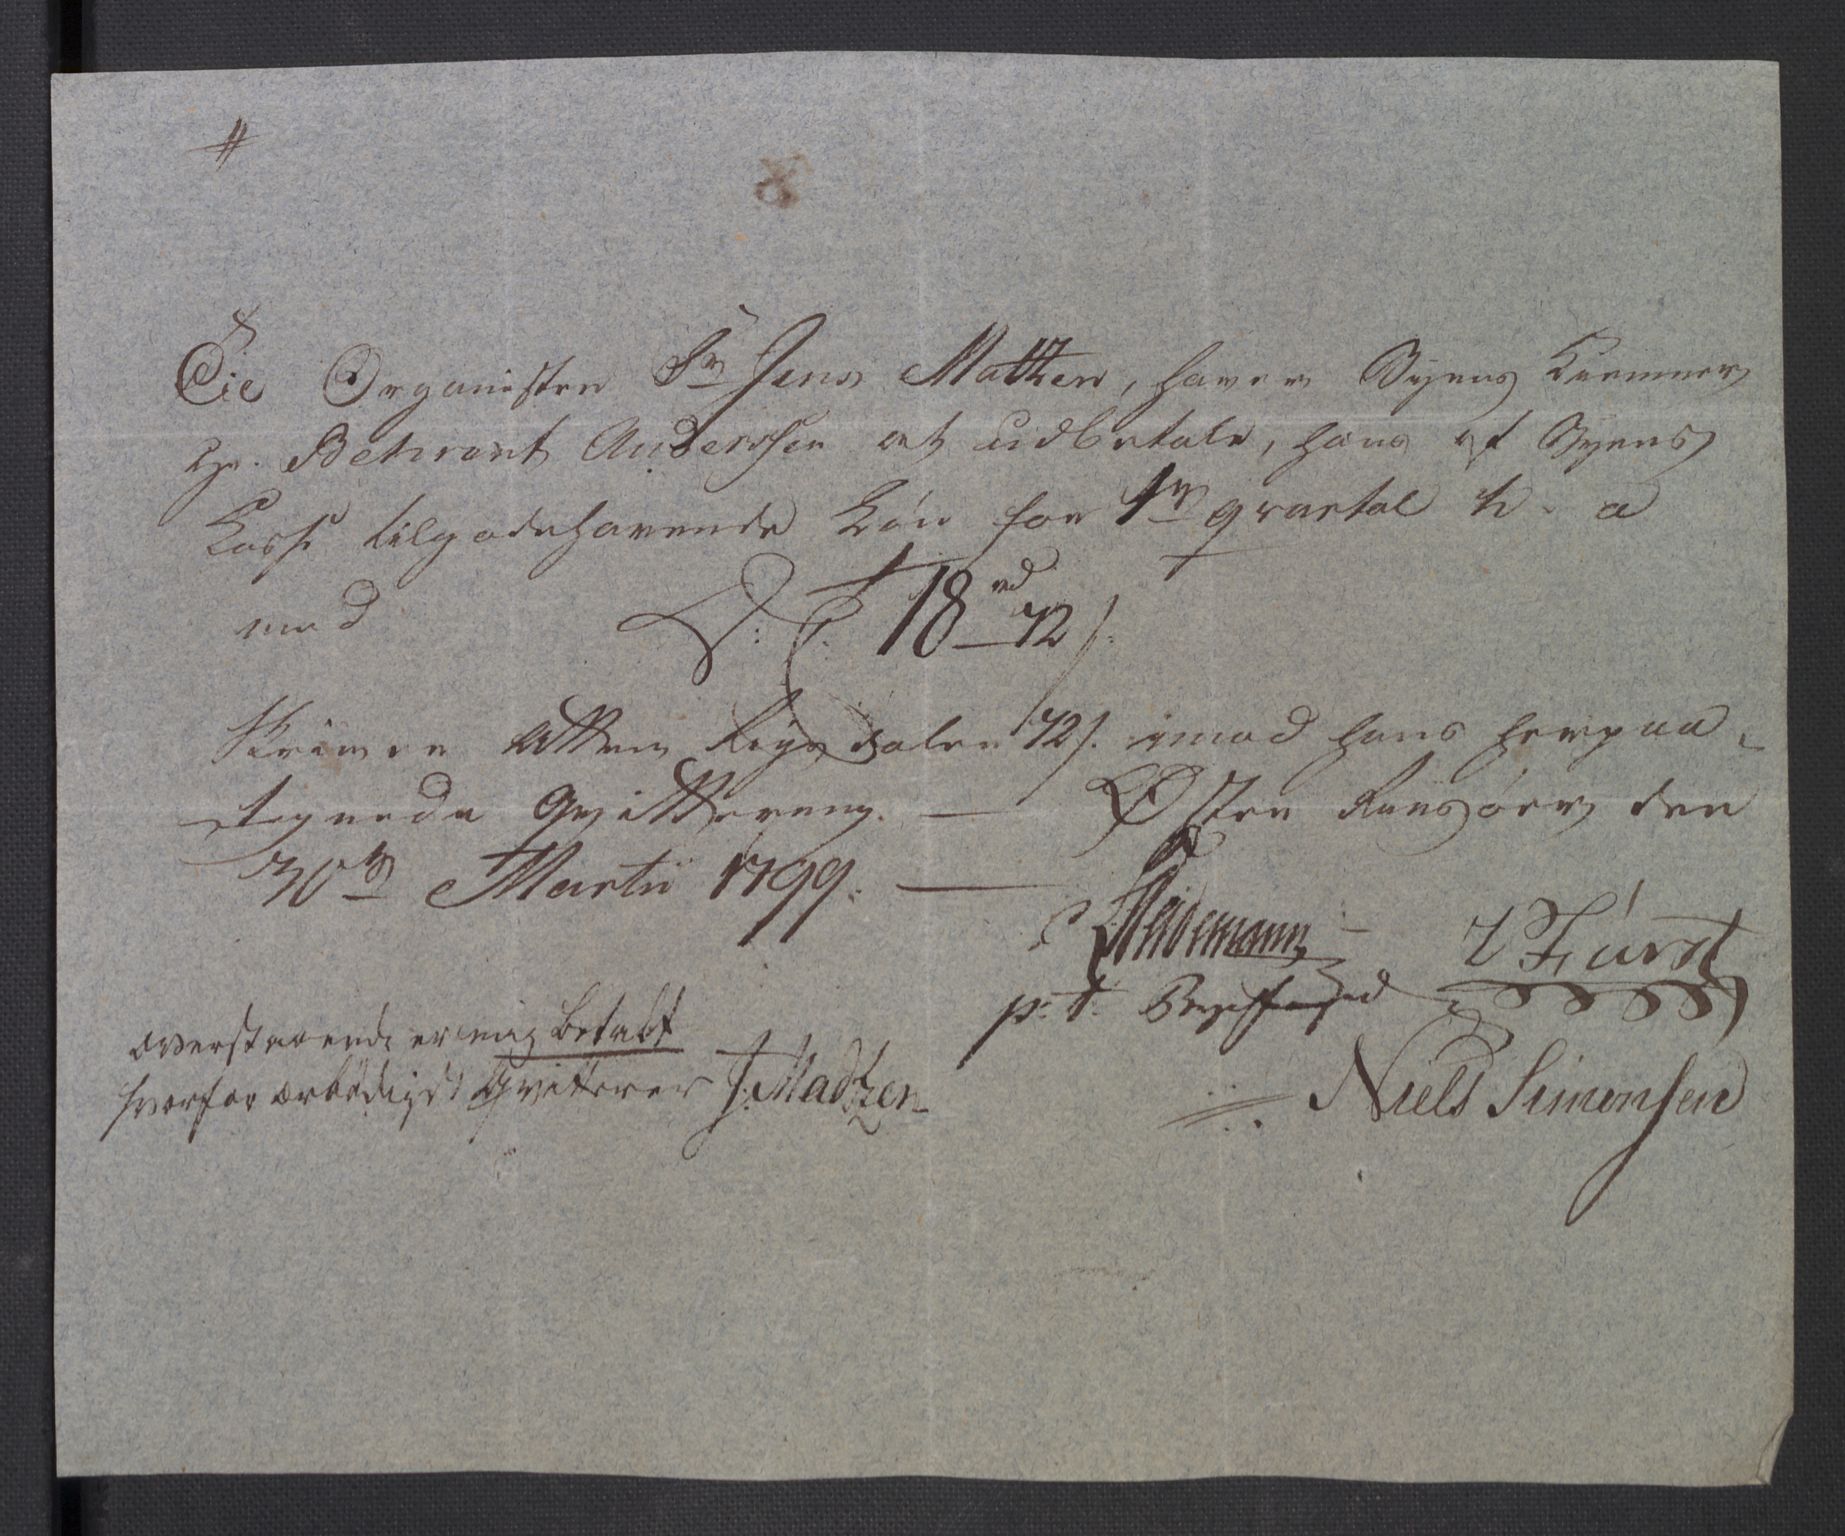 Til Organisten Sr Jens Mathzen, haver Byens Kiemner
Hr. Behrent Anderssen at udbetale, hans af Byens
Casse tilgodehavende Løn for 1te qvartal h. a
med D: C: 18 rd 72 s.
Skriver Atten Rigsdaler 72 s. imod hans herpaa
tegnede Qvittering. — Østerriisøer den
30te Martii 1799. —
Weidemann
p: t: Byefoged
Fürst
Niels Simonsen
Overstaaende er mig betalt
hvorfor ærbødigst Qvitterer J: Madtzen